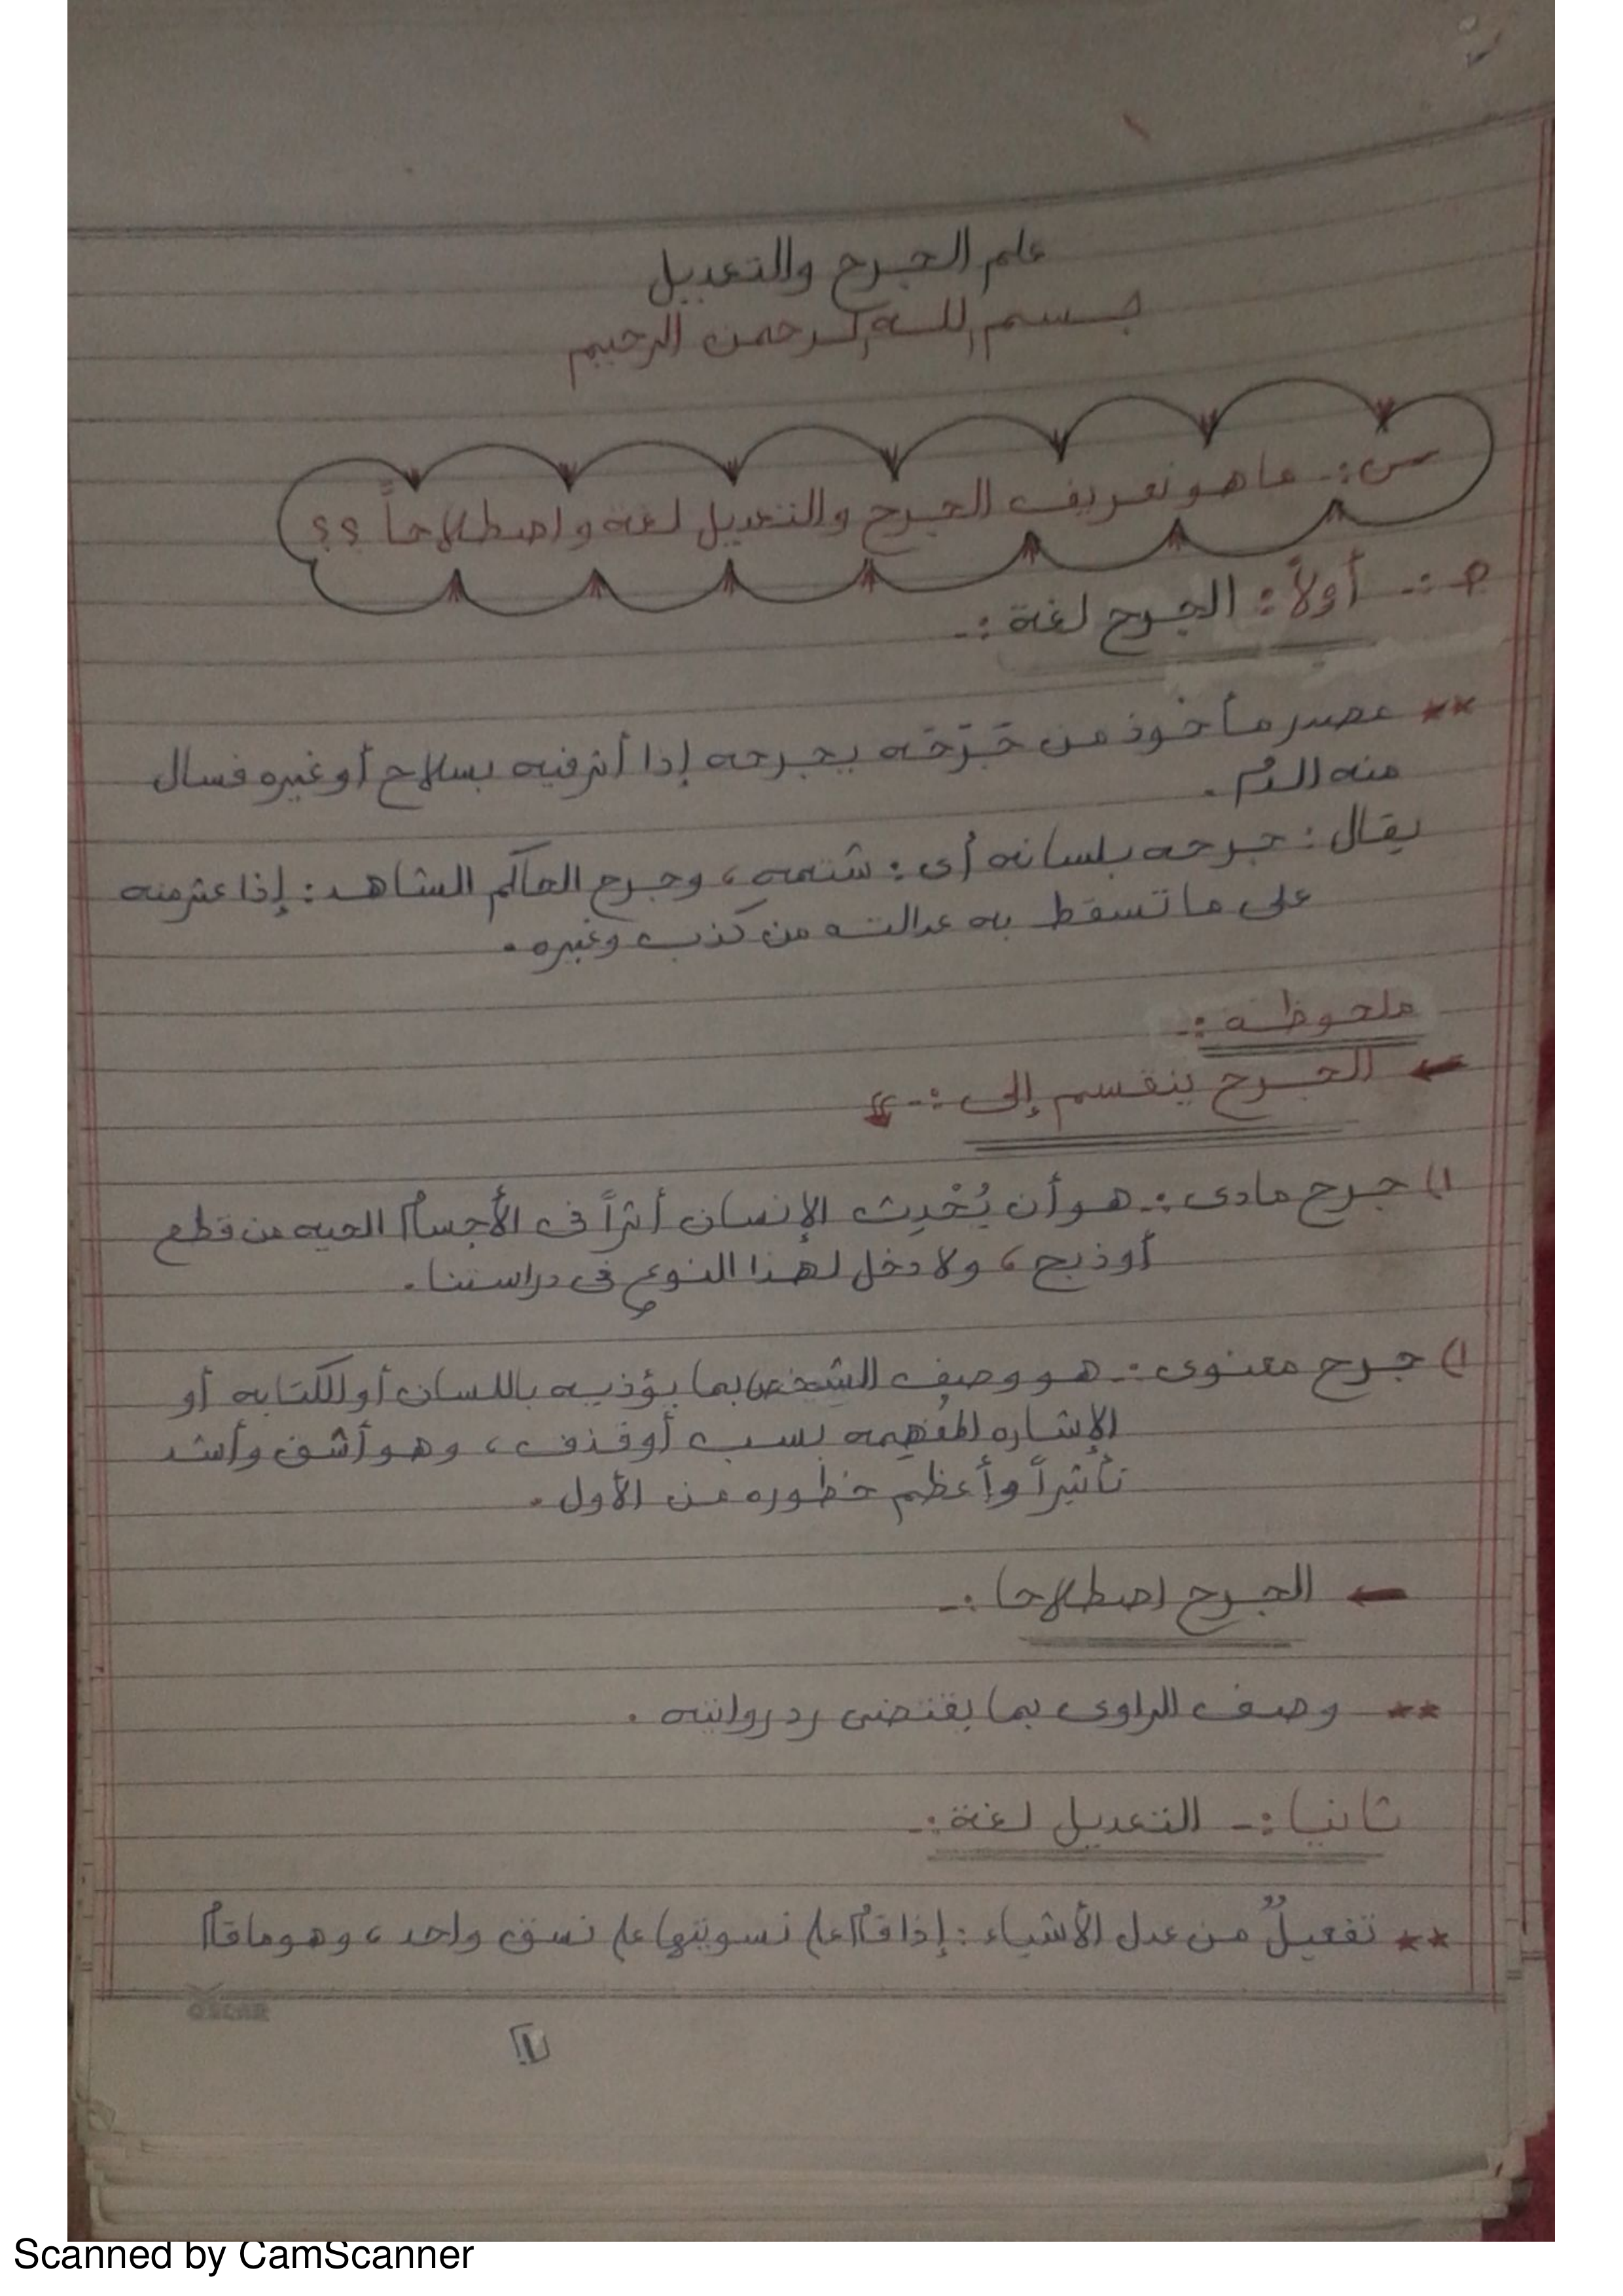 علم الجرح والتعديل
بسم الله الرحمن الرحيم
س :- ما هو تعريف الجرح والتعديل لغة واصطلاحاً ؟؟
ج :- أولاً : الجرح لغة :-
** مصدر مأخوذ من جَرَحَه يجرحه إذا أثر فيه بسلاح أو غيره فسال
منه الدم .
يقال : جرحه بلسانه أى : شتمه ، وجرح الحاكم الشاهد : إذا عثر منه
على ما تسقط به عدالته من كذب وغيره .
ملحوظه :-
← الجرح ينقسم إلى :-
١) جرح مادى :- هو أن يُحْدِث الإنسان أثراً فى الأجسام الحيه من قطع
أو ذبح ، ولا دخل لهذا النوع فى دراستنا .
١) جرح معنوى :- هو وصف الشخص بما يؤذيه باللسان أو الكتابه أو
الإشاره المُفهمه بسب أو قذف ، وهو أشق وأشد
تأثيراً وأعظم خطوره من الأول .
← الجرح اصطلاحا :-
** وصف الراوى بما يقتضى رد روايته .
ثانيا :- التعديل لغة :-
** تفعيلٌ من عدل الأشياء : إذا قام على تسويتها على نسق واحد ، وهو ما قام
OSCAR
١
Scanned by CamScanner